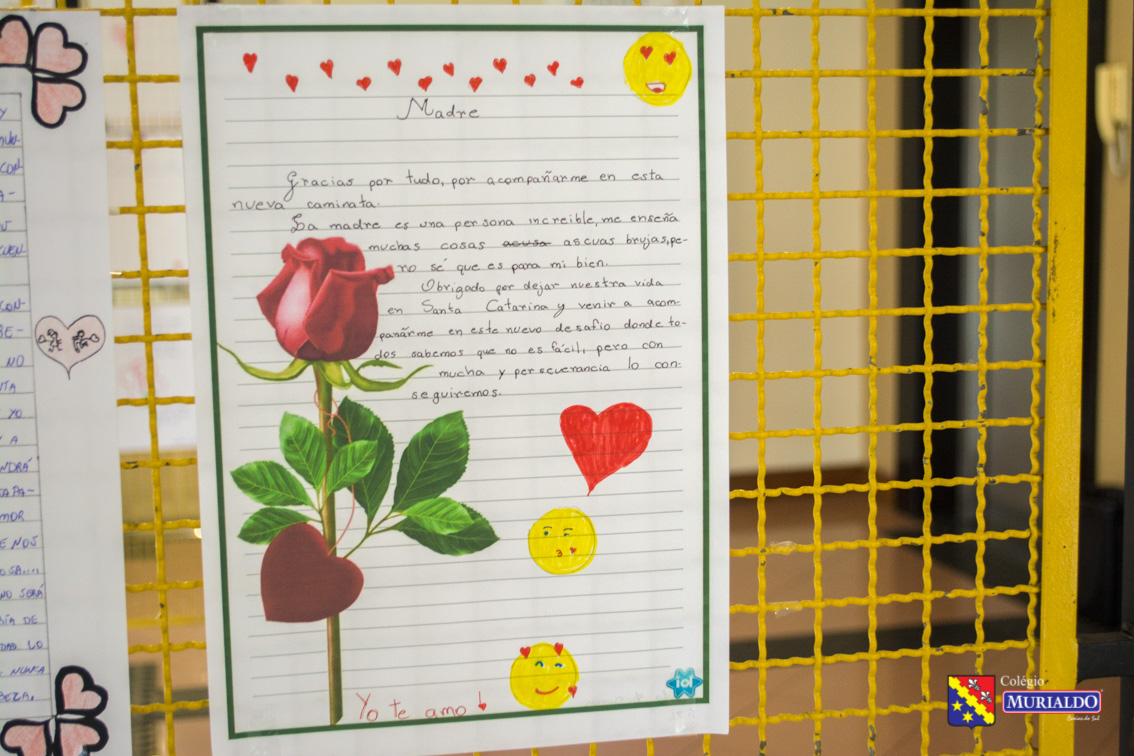 Madre
Gracias por tudo, por acompañarme en esta
nueva caminata.
La madre es una persona increible, me enseña
muchas cosas acusa ascuas brujas, pe-
ro sé que es para mi bien.
Obrigado por dejar nuestra vida
en Santa Catarina y venir a acom-
panãrme en este nuevo desafio donde to-
dos sabemos que no es fácil, pero con
mucha y perseverancia lo con-
seguiremos.
Yo te amo
iol
CON
NO
YO
Y A
NDRÁ
MOR
E NOS
NO SERÁ
ÍA DE
LO
NUNCA
BEZA.
Colégio
MURIALDO
Caxias do Sul